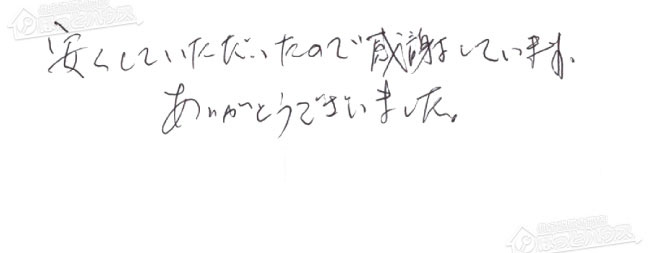 安くしていただいたので感謝しています。
ありがとうございました。